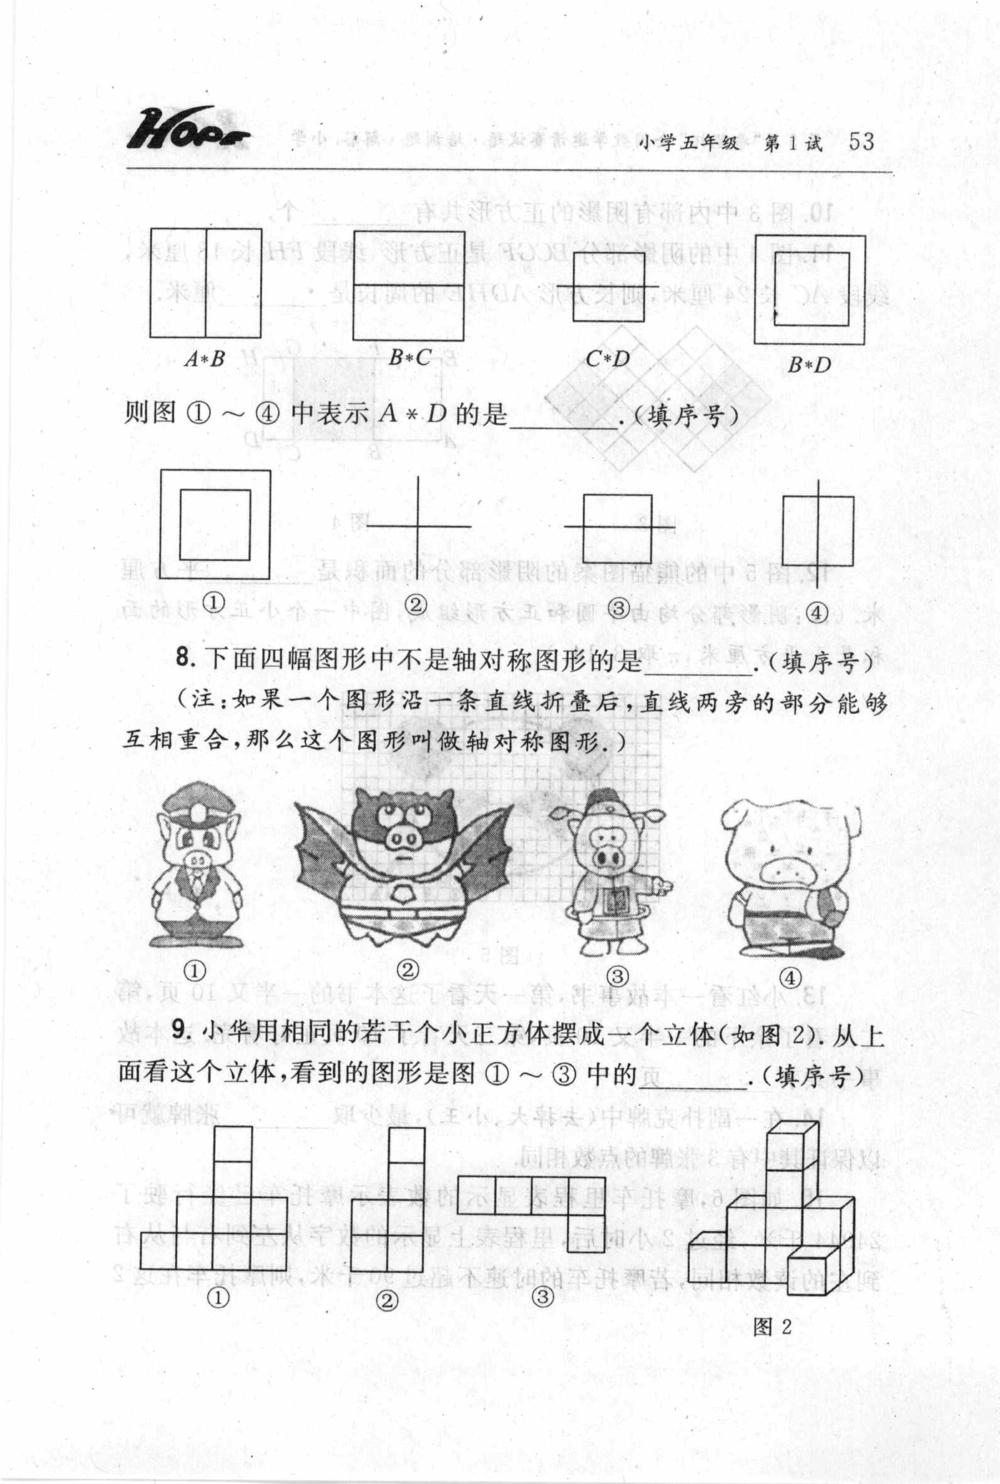 HOPE
小学五年级 第1试 53
A*B B*C C*D B*D
则图 ① ~ ④ 中表示 A * D 的是________.(填序号)
① ② ③ ④
8. 下面四幅图形中不是轴对称图形的是________.(填序号)
(注:如果一个图形沿一条直线折叠后,直线两旁的部分能够
互相重合,那么这个图形叫做轴对称图形.)
① ② ③ ④
9. 小华用相同的若干个小正方体摆成一个立体(如图 2). 从上
面看这个立体,看到的图形是图 ① ~ ③ 中的________.(填序号)
① ② ③
图 2